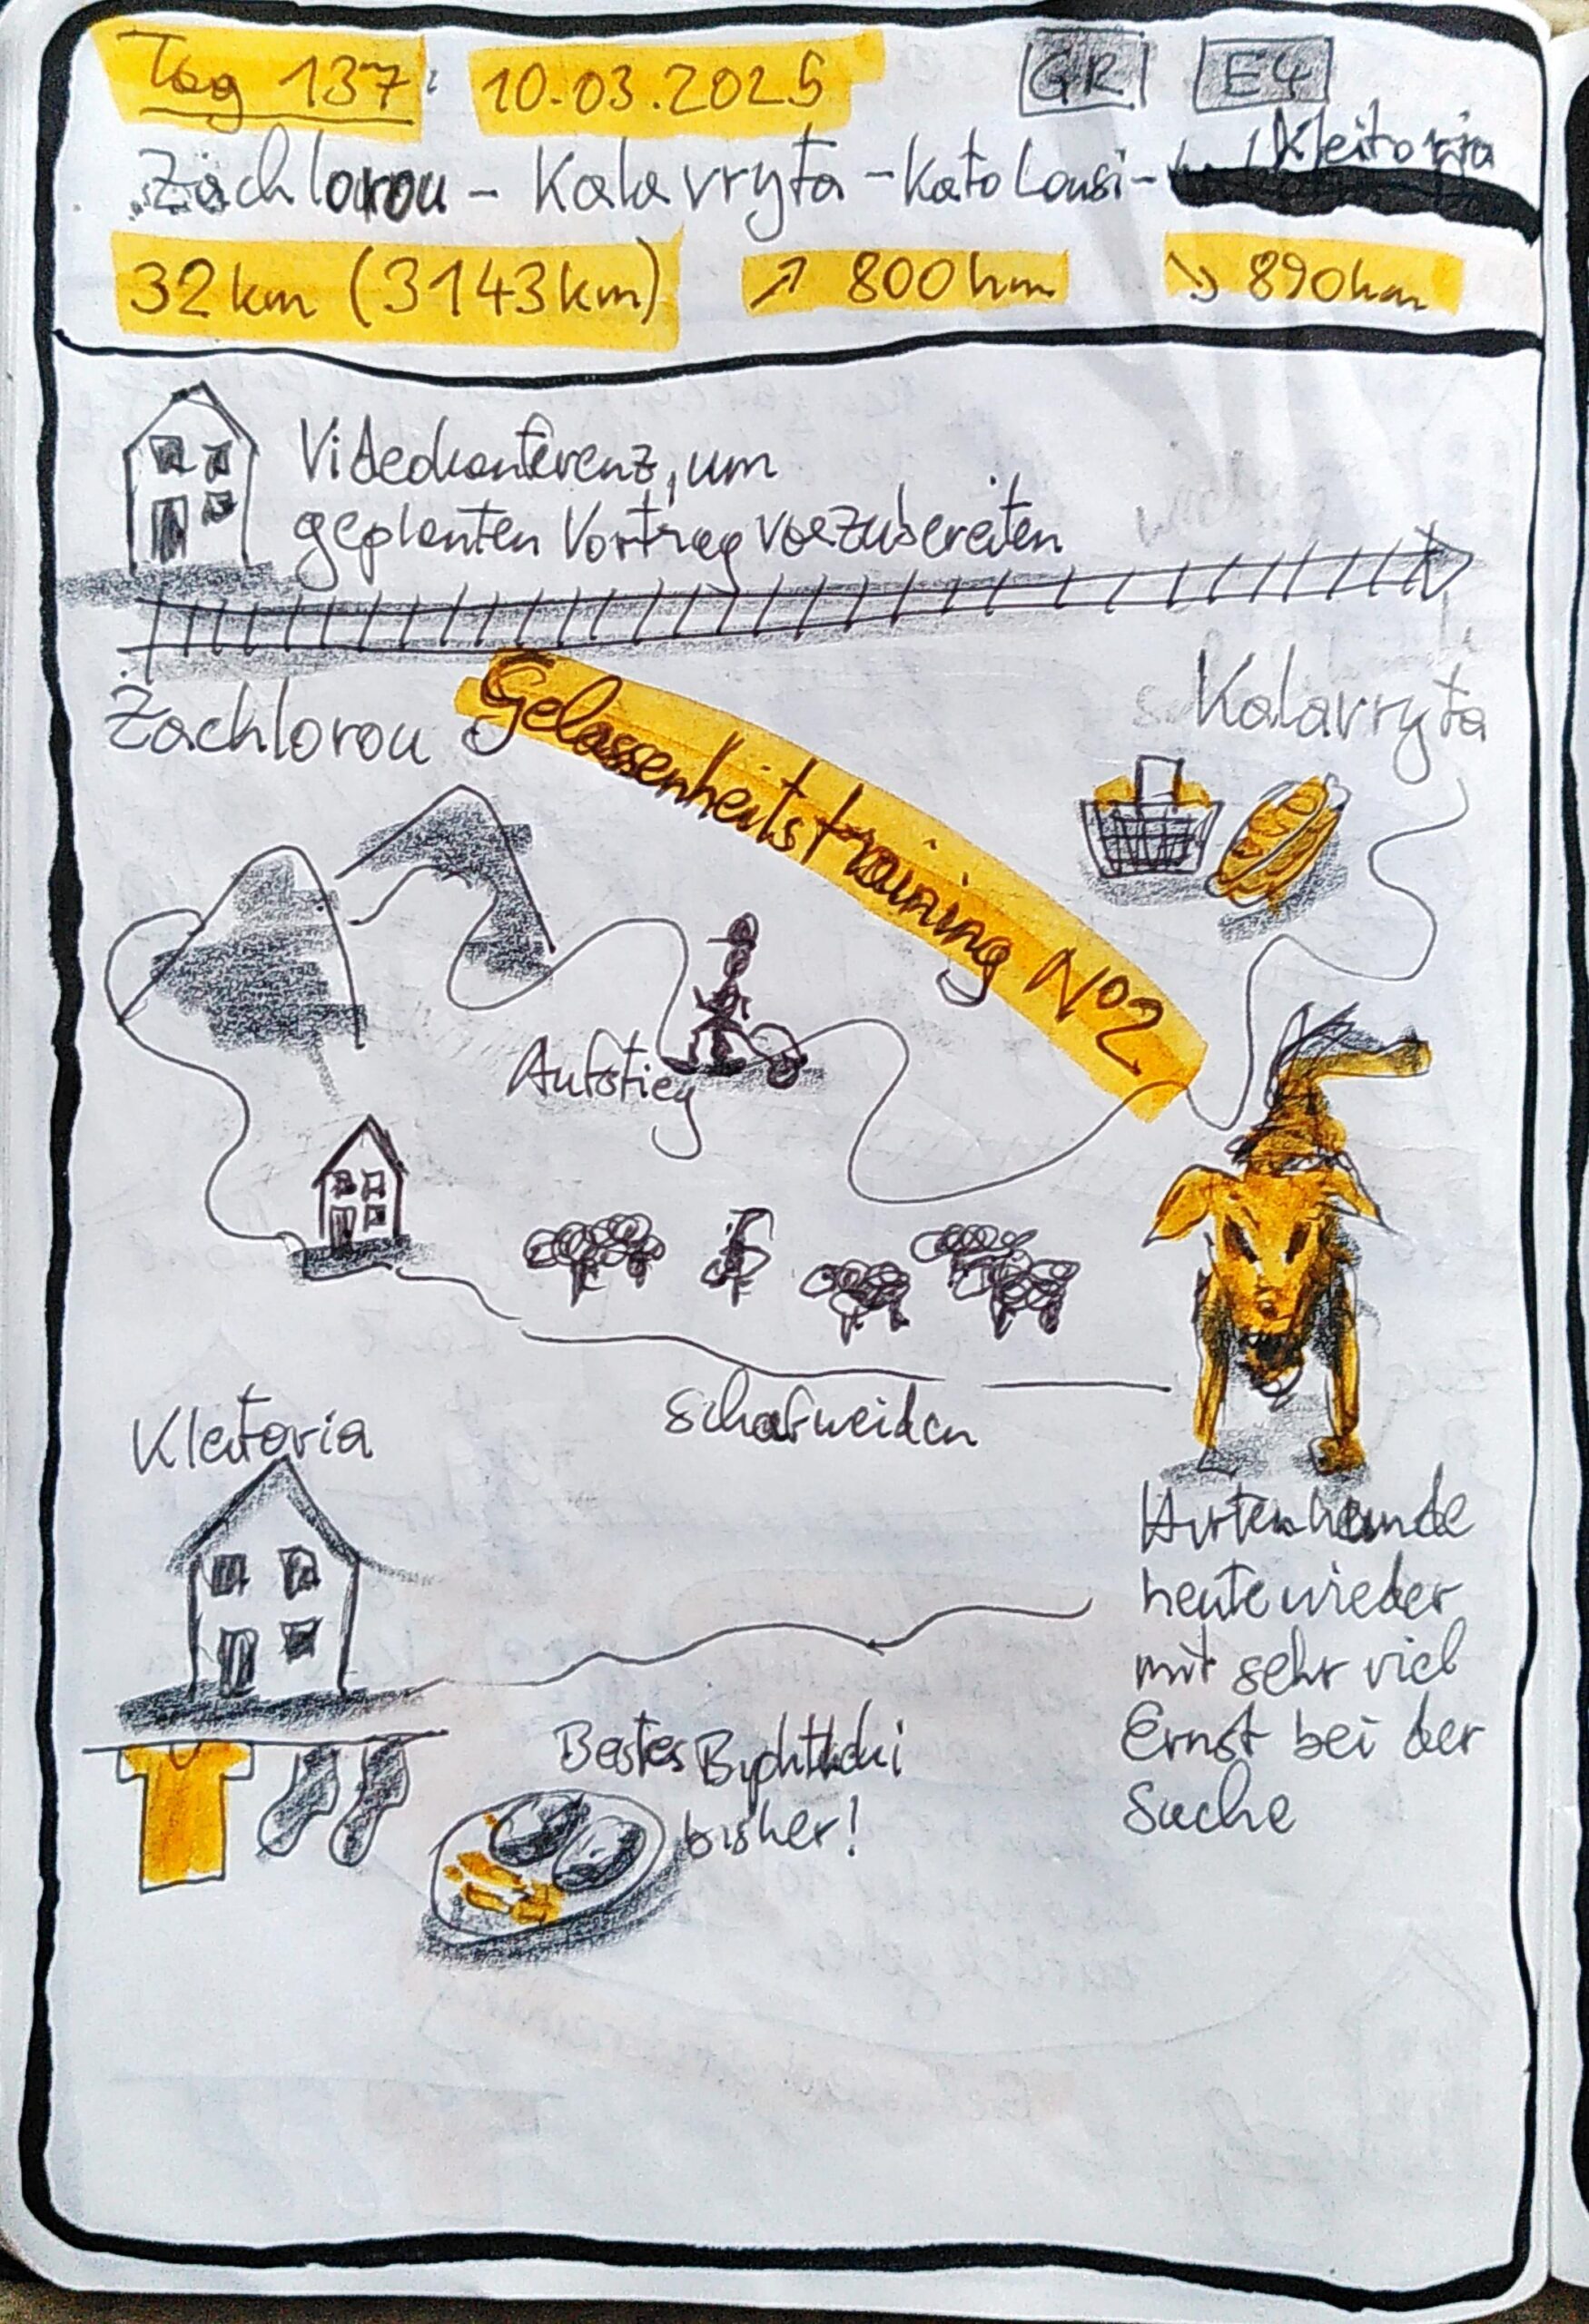 Tag 137: 10.03.2025 GR E4
Zachlorou - Kalavryta - Kato Lousi - Kleitoria
32 km (3143 km) ↗ 800 hm ↘ 890 hm
Videokonferenz, um
geplanten Vortrag vorzubereiten
Zachlorou
Kalavryta
Gelassenheitstraining No2
Aufstieg
Schafweiden
Kleitoria
Hirtenhunde
heute wieder
mit sehr viel
Ernst bei der
Sache
Bestes
bisher!